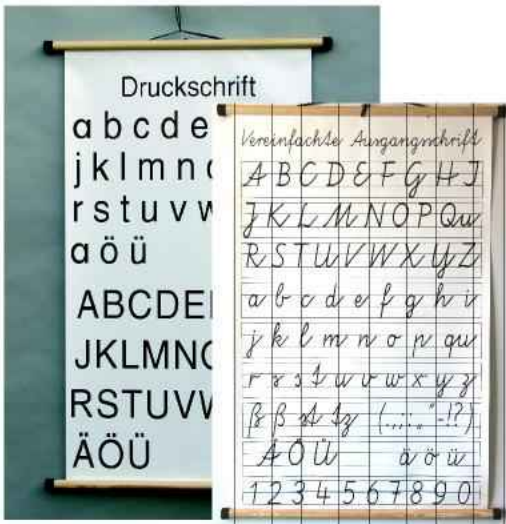 Druckschrift
a b c d e
j k l m n
r s t u v w
a ö ü
ABCDE
JKLMN
RSTUV
ÄÖÜ
Vereinfachte Ausgangsschrift
A B C D E F G H I
J K L M N O P Qu
R S T U V W X Y Z
a b c d e f g h i
j k l m n o p qu
r r s t u v w x y z
ß ß st tz (.,;:„“-!?)
Ä Ö Ü ä ö ü
1 2 3 4 5 6 7 8 9 0